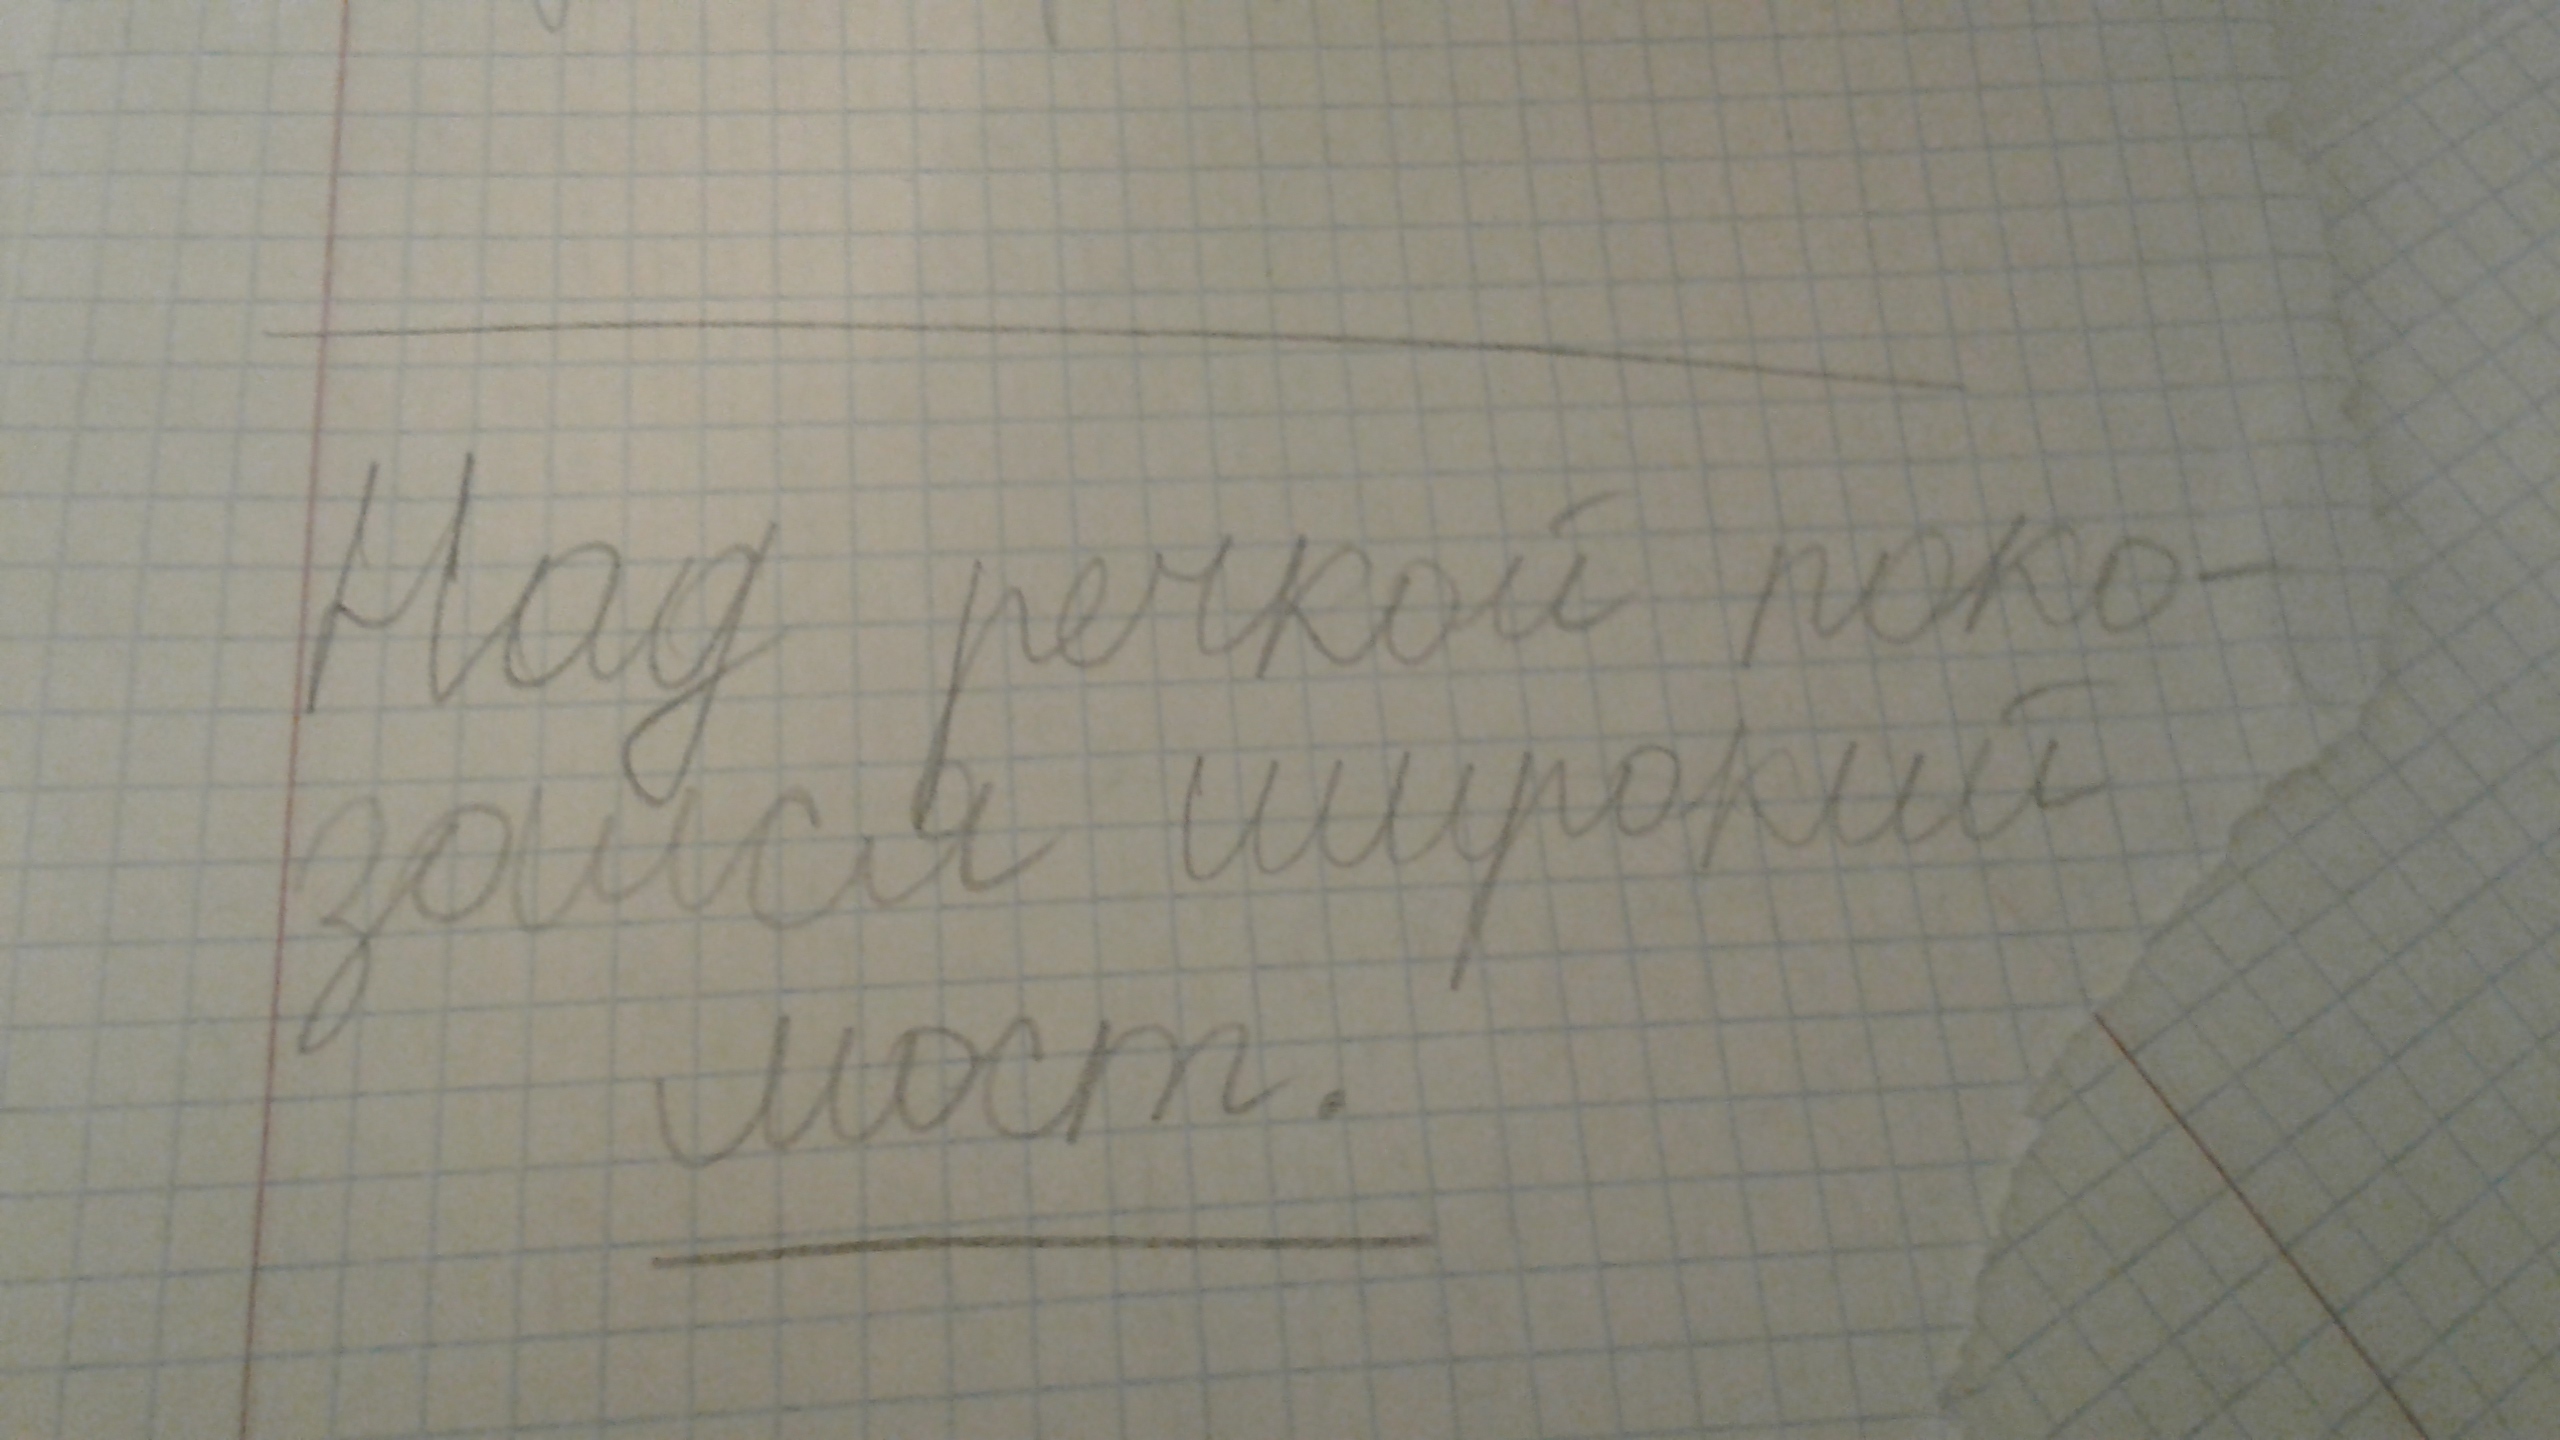 Над речкой поко-
зался широкий
мост.